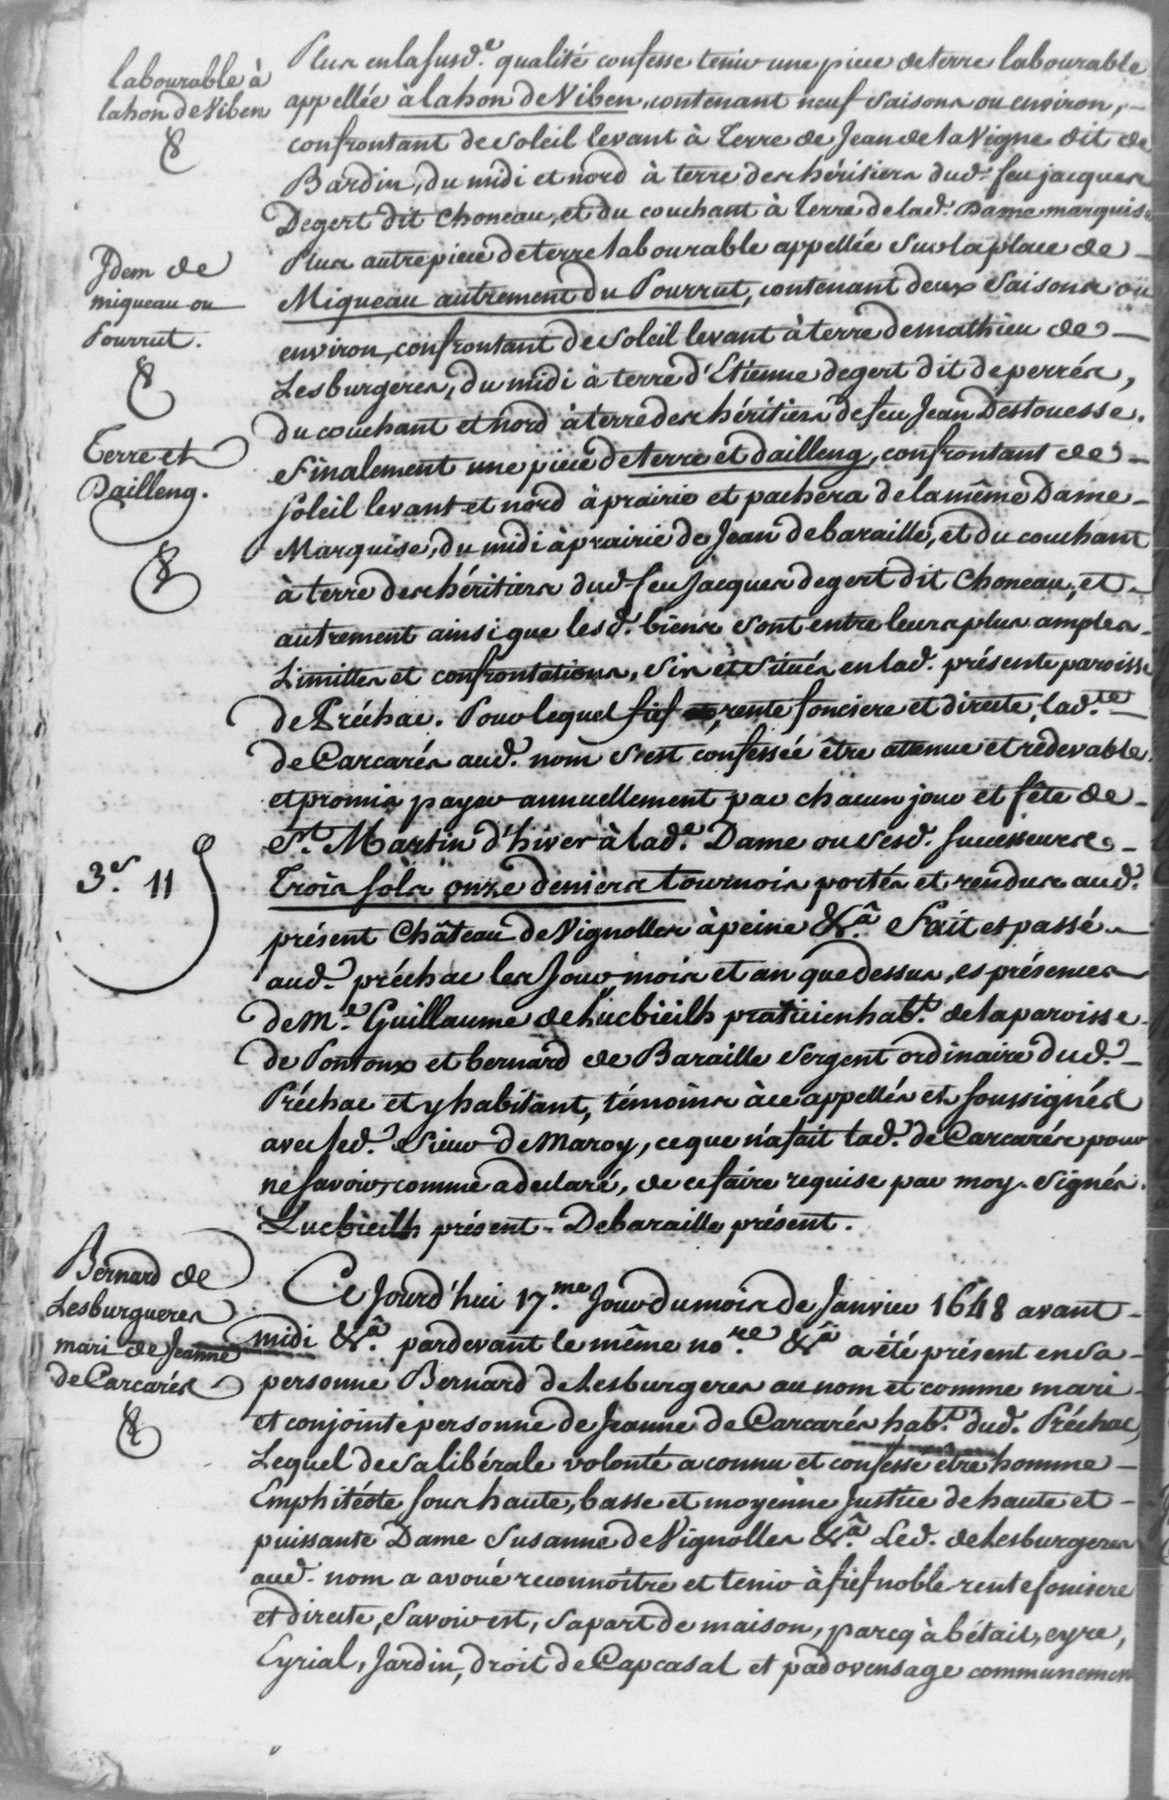 labourable à
lahon de Viben
Plus en la susd.e qualité confesse tenir une piece de terre labourable
appellée à lahon de Viben, contenant neuf Saisons ou environ,
confrontant de Soleil levant à Terre de Jean de la Vigne dit de
Bardin, du midi et nord à terre des héritiers dud. feu jacques
Degert dit Choneau, et du couchant à Terre de lad. Dame marquise
Jdem de
miqueau ou
Pourrut.
Plus autre piece de terre labourable appellée Sur la place de
Miqueau autrement du Pourrut, contenant deux Saisons ou
environ, confrontant de Soleil levant à terre de mathieu de
Lesburgeres, du midi à terre d'Etienne degert dit de perrés,
du couchant et nord à terre des héritiers de feu Jean Destouesse.
Terre et
Dailleng.
Finalement une piece de terre et dailleng, confrontant de
Soleil levant et nord à prairie et pachera de la même Dame
Marquise, du midi à prairie de Jean debaraille, et du couchant
à terre des héritiers dud. feu Jacques degert dit Choneau, et
autrement ainsi que lesd. biens Sont entre leurs plus amples
Limittes et confrontations, Sis et Situés en lad. présente paroisse
de Préchac. Pour lequel fief rente fonciere et directe, lad.te
de Carcarés aud. nom S'est confessée être attenue et redevable
et promis payer annuellement par chacun jour et fête de
St. Martin d'hiver à lad.e Dame ou Sesd. Successeurs
3.s 11
Trois Sols onze deniers tournois portés et rendus aud.
présent Château de Vignolles à peine &.a Fait et passé
aud. préchac les Jour, mois et an que dessus, es présences
de M.e Guillaume de Lucbieilh praticien hab.t de la paroisse
de Pontoux et bernard de Baraille Sergent ordinaire dud.
Préchac et y habitant, témoins à ce appellés et Soussignés
avec led. Sieur de Maroy, ce que n'a fait lad. de Carcarés pour
ne Savoir, comme a declaré, de ce faire requise par moy. Signés
Lucbieilh présent. Debaraille présent.
Bernard de
Lesburgueres
mari de Jeanne
de Carcarés
Ce Jourd'hui 17.me Jour du mois de Janvier 1648 avant
midi &.a pardevant le même no.re &a a été présent en Sa
personne Bernard de Lesburgeres au nom et comme mari
et conjointe personne de Jeanne de Carcarés hab.t dud. Préchac,
Lequel de Sa libérale volonté a connu et confesse être homme
Emphitéote sous haute, basse et moyenne Justice de haute et
puissante Dame Susanne de Vignolles &.a Led. de Lesburgeres
aud. nom a avoué reconnoître et tenir à fief noble rente fonciere
et directe, Savoir est, Sa part de maison, parcq à bétail, eyre,
Eyrial, Jardin, droit de Capcasal et padovensage communement